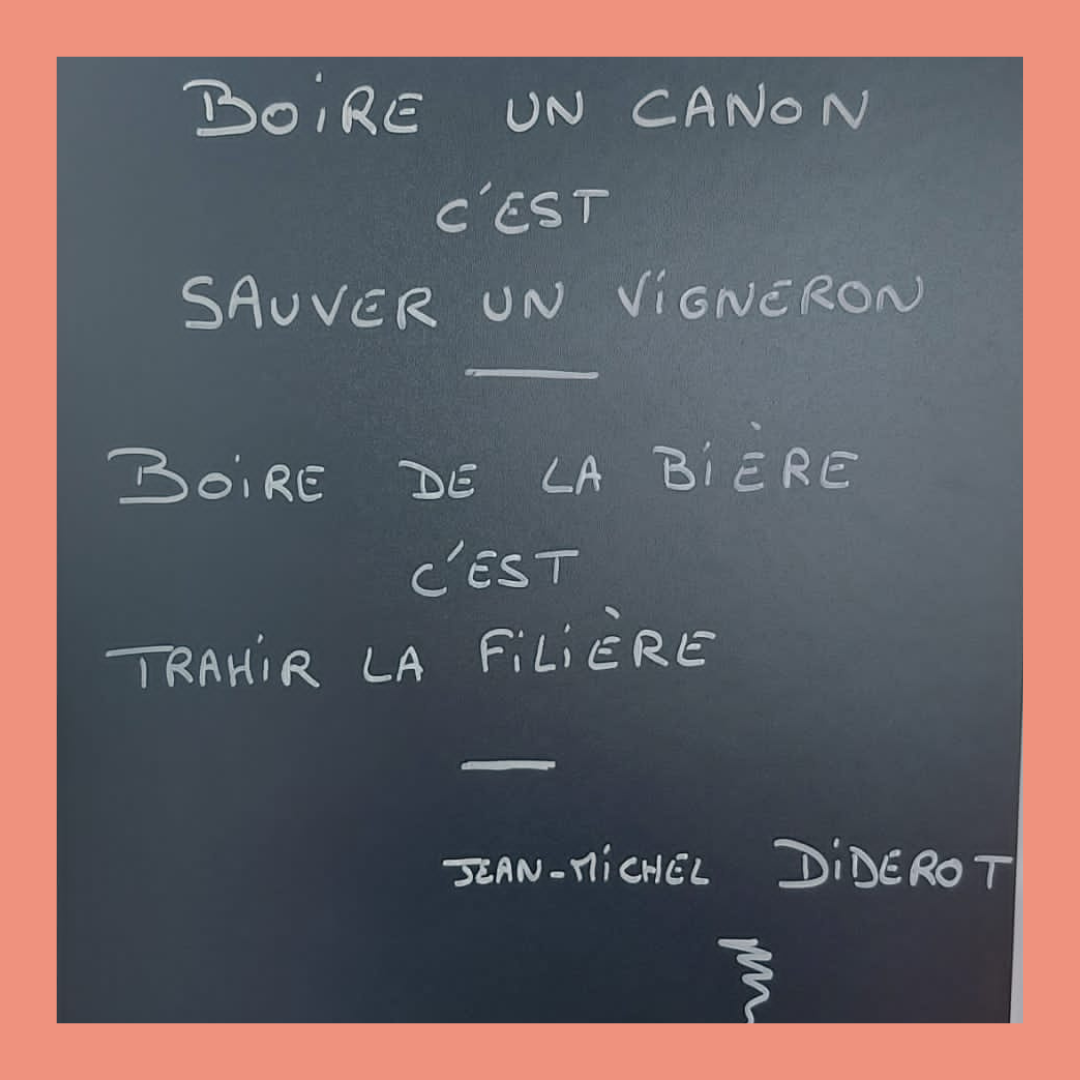 BOIRE UN CANON
C'EST
SAUVER UN VIGNERON
BOIRE DE LA BIÈRE
C'EST
TRAHIR LA FILIÈRE
JEAN-MICHEL DIDEROT